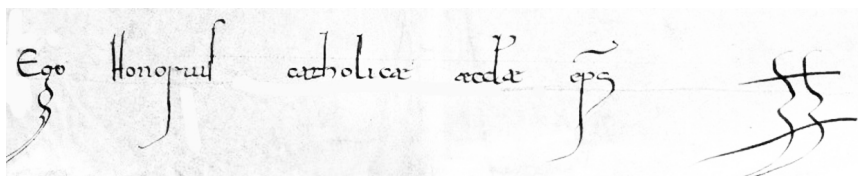 Ego Honorius catholicæ æccl̄æ ep̄s ss